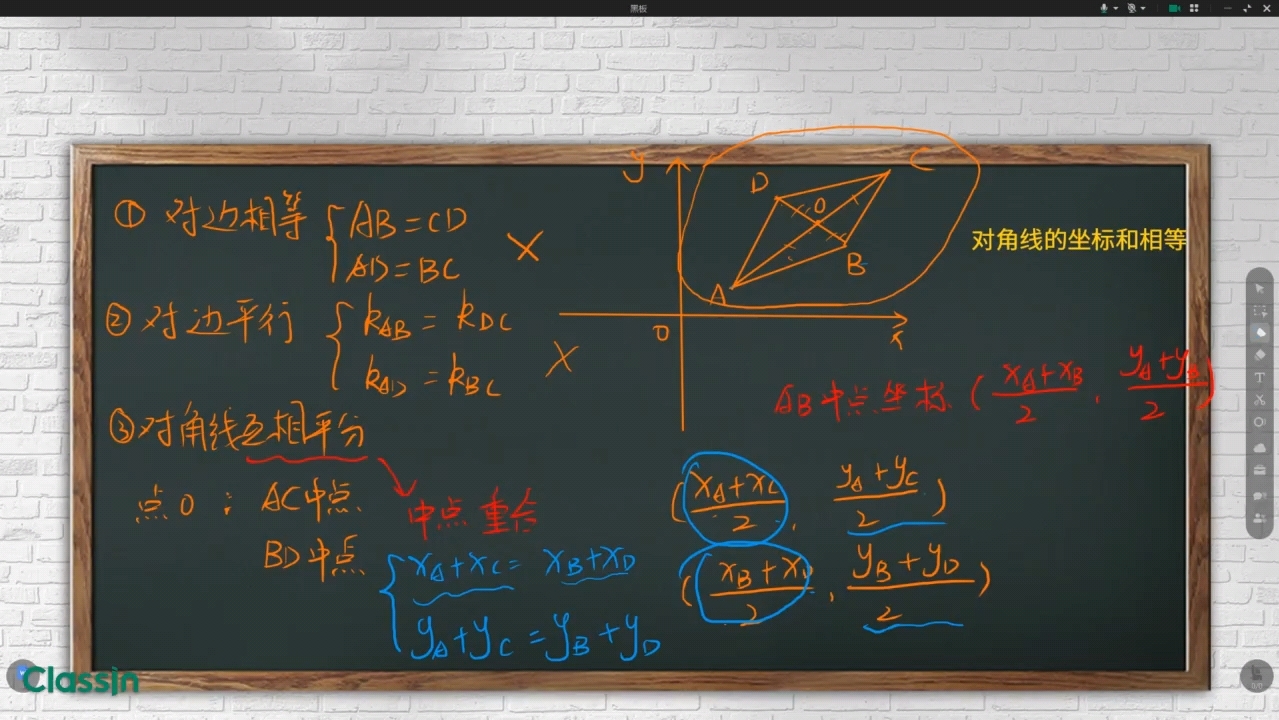 黑板
① 对边相等 { AB=CD
AD=BC ×
② 对边平行 { kAB = kDC
kAD = kBC ×
③ 对角线互相平分
点O： AC中点
BD中点
中点重合
{ xA+xC = xB+xD
yA+yC = yB+yD
y
D
C
O
A
B
O
x
对角线的坐标和相等
AB中点坐标 ( (xA+xB)/2 , (yA+yB)/2 )
( (xA+xC)/2 , (yA+yC)/2 )
( (xB+xD)/2 , (yB+yD)/2 )
ClassIn
0/0